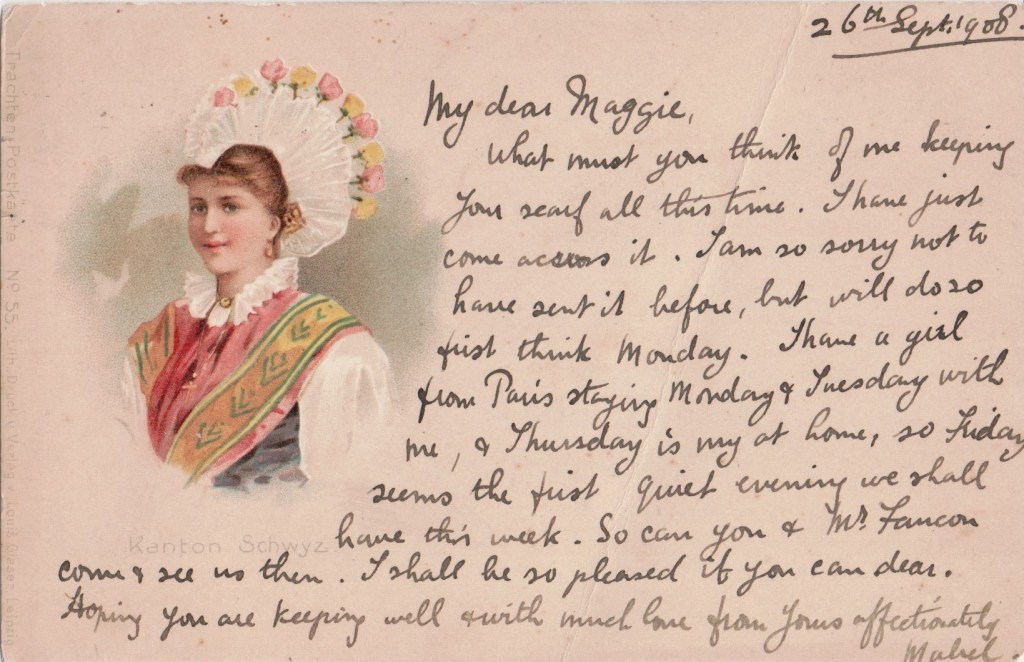 26th Sept. 1908.
My dear Maggie,
What must you think of me keeping
your scarf all this time. I have just
come across it. I am so sorry not to
have sent it before, but will do so
first think Monday. I have a girl
from Paris staying Monday & Tuesday with
me, & Thursday is my at home, so Friday
seems the first quiet evening we shall
have this week. So can you & Mr. Faucon
come & see us then. I shall be so pleased if you can dear.
Hoping you are keeping well & with much love from yours affectionately
Mabel.
Kanton Schwyz.
Trachten-Postkarte No 55.